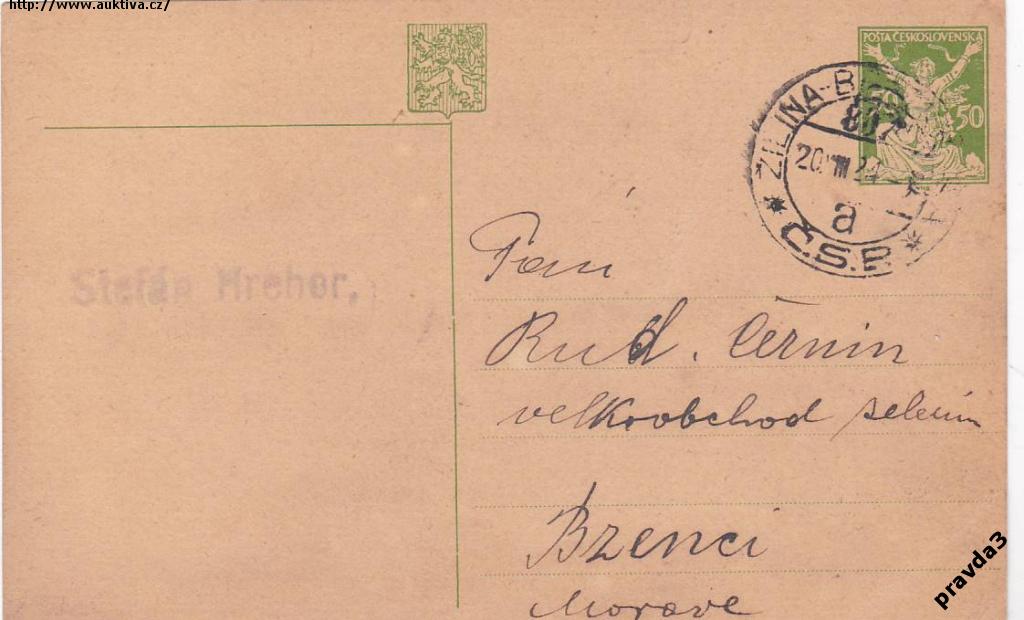 http://www.auktiva.cz/
POŠTA ČESKOSLOVENSKÁ
50 50
ŽILINA-B
807
20.VIII.24
a
Č.S.P.
Štefán Hrehor,
Paní
Rud. Černín
velkoobchod zelením
Bzenci
Morave
pravda3